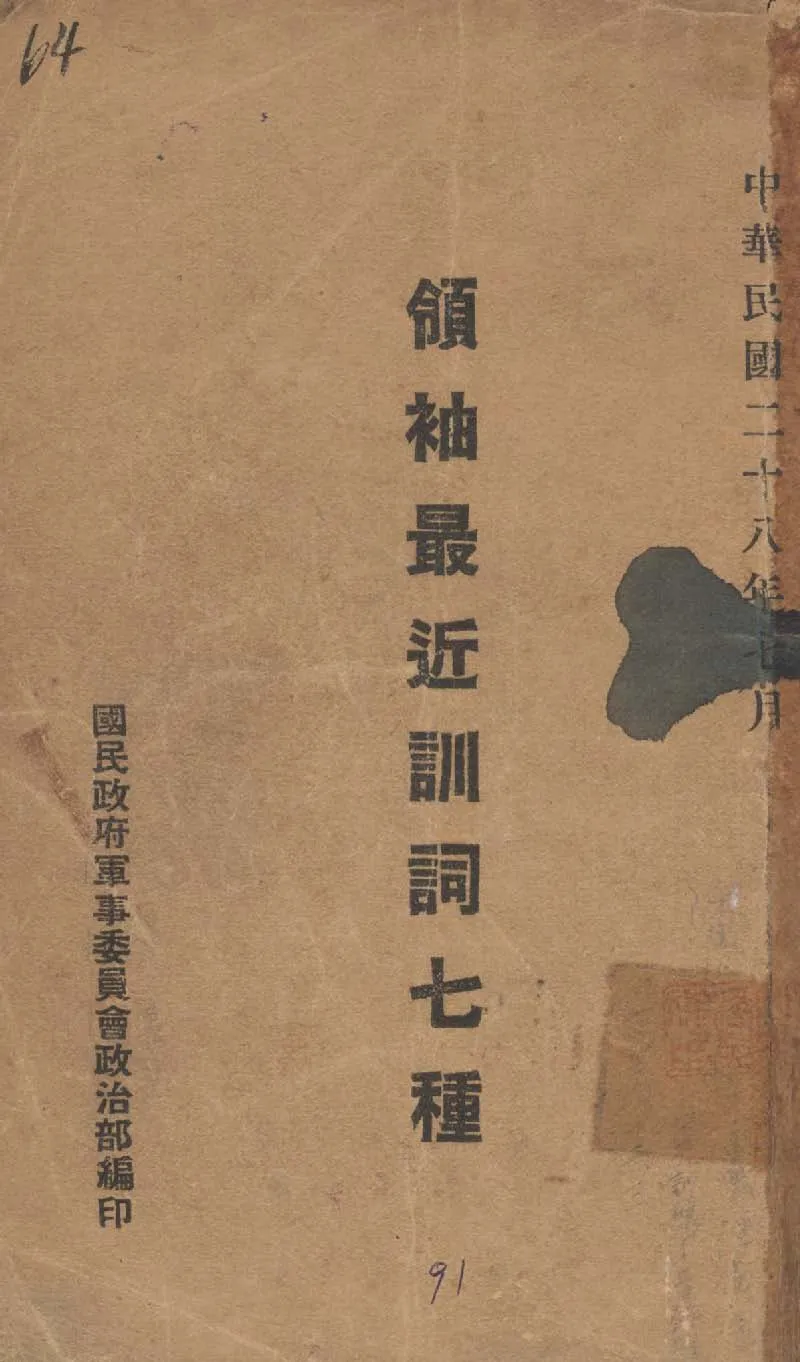 64
中華民國二十八年七月
領袖最近訓詞七種
國民政府軍事委員會政治部編印
91